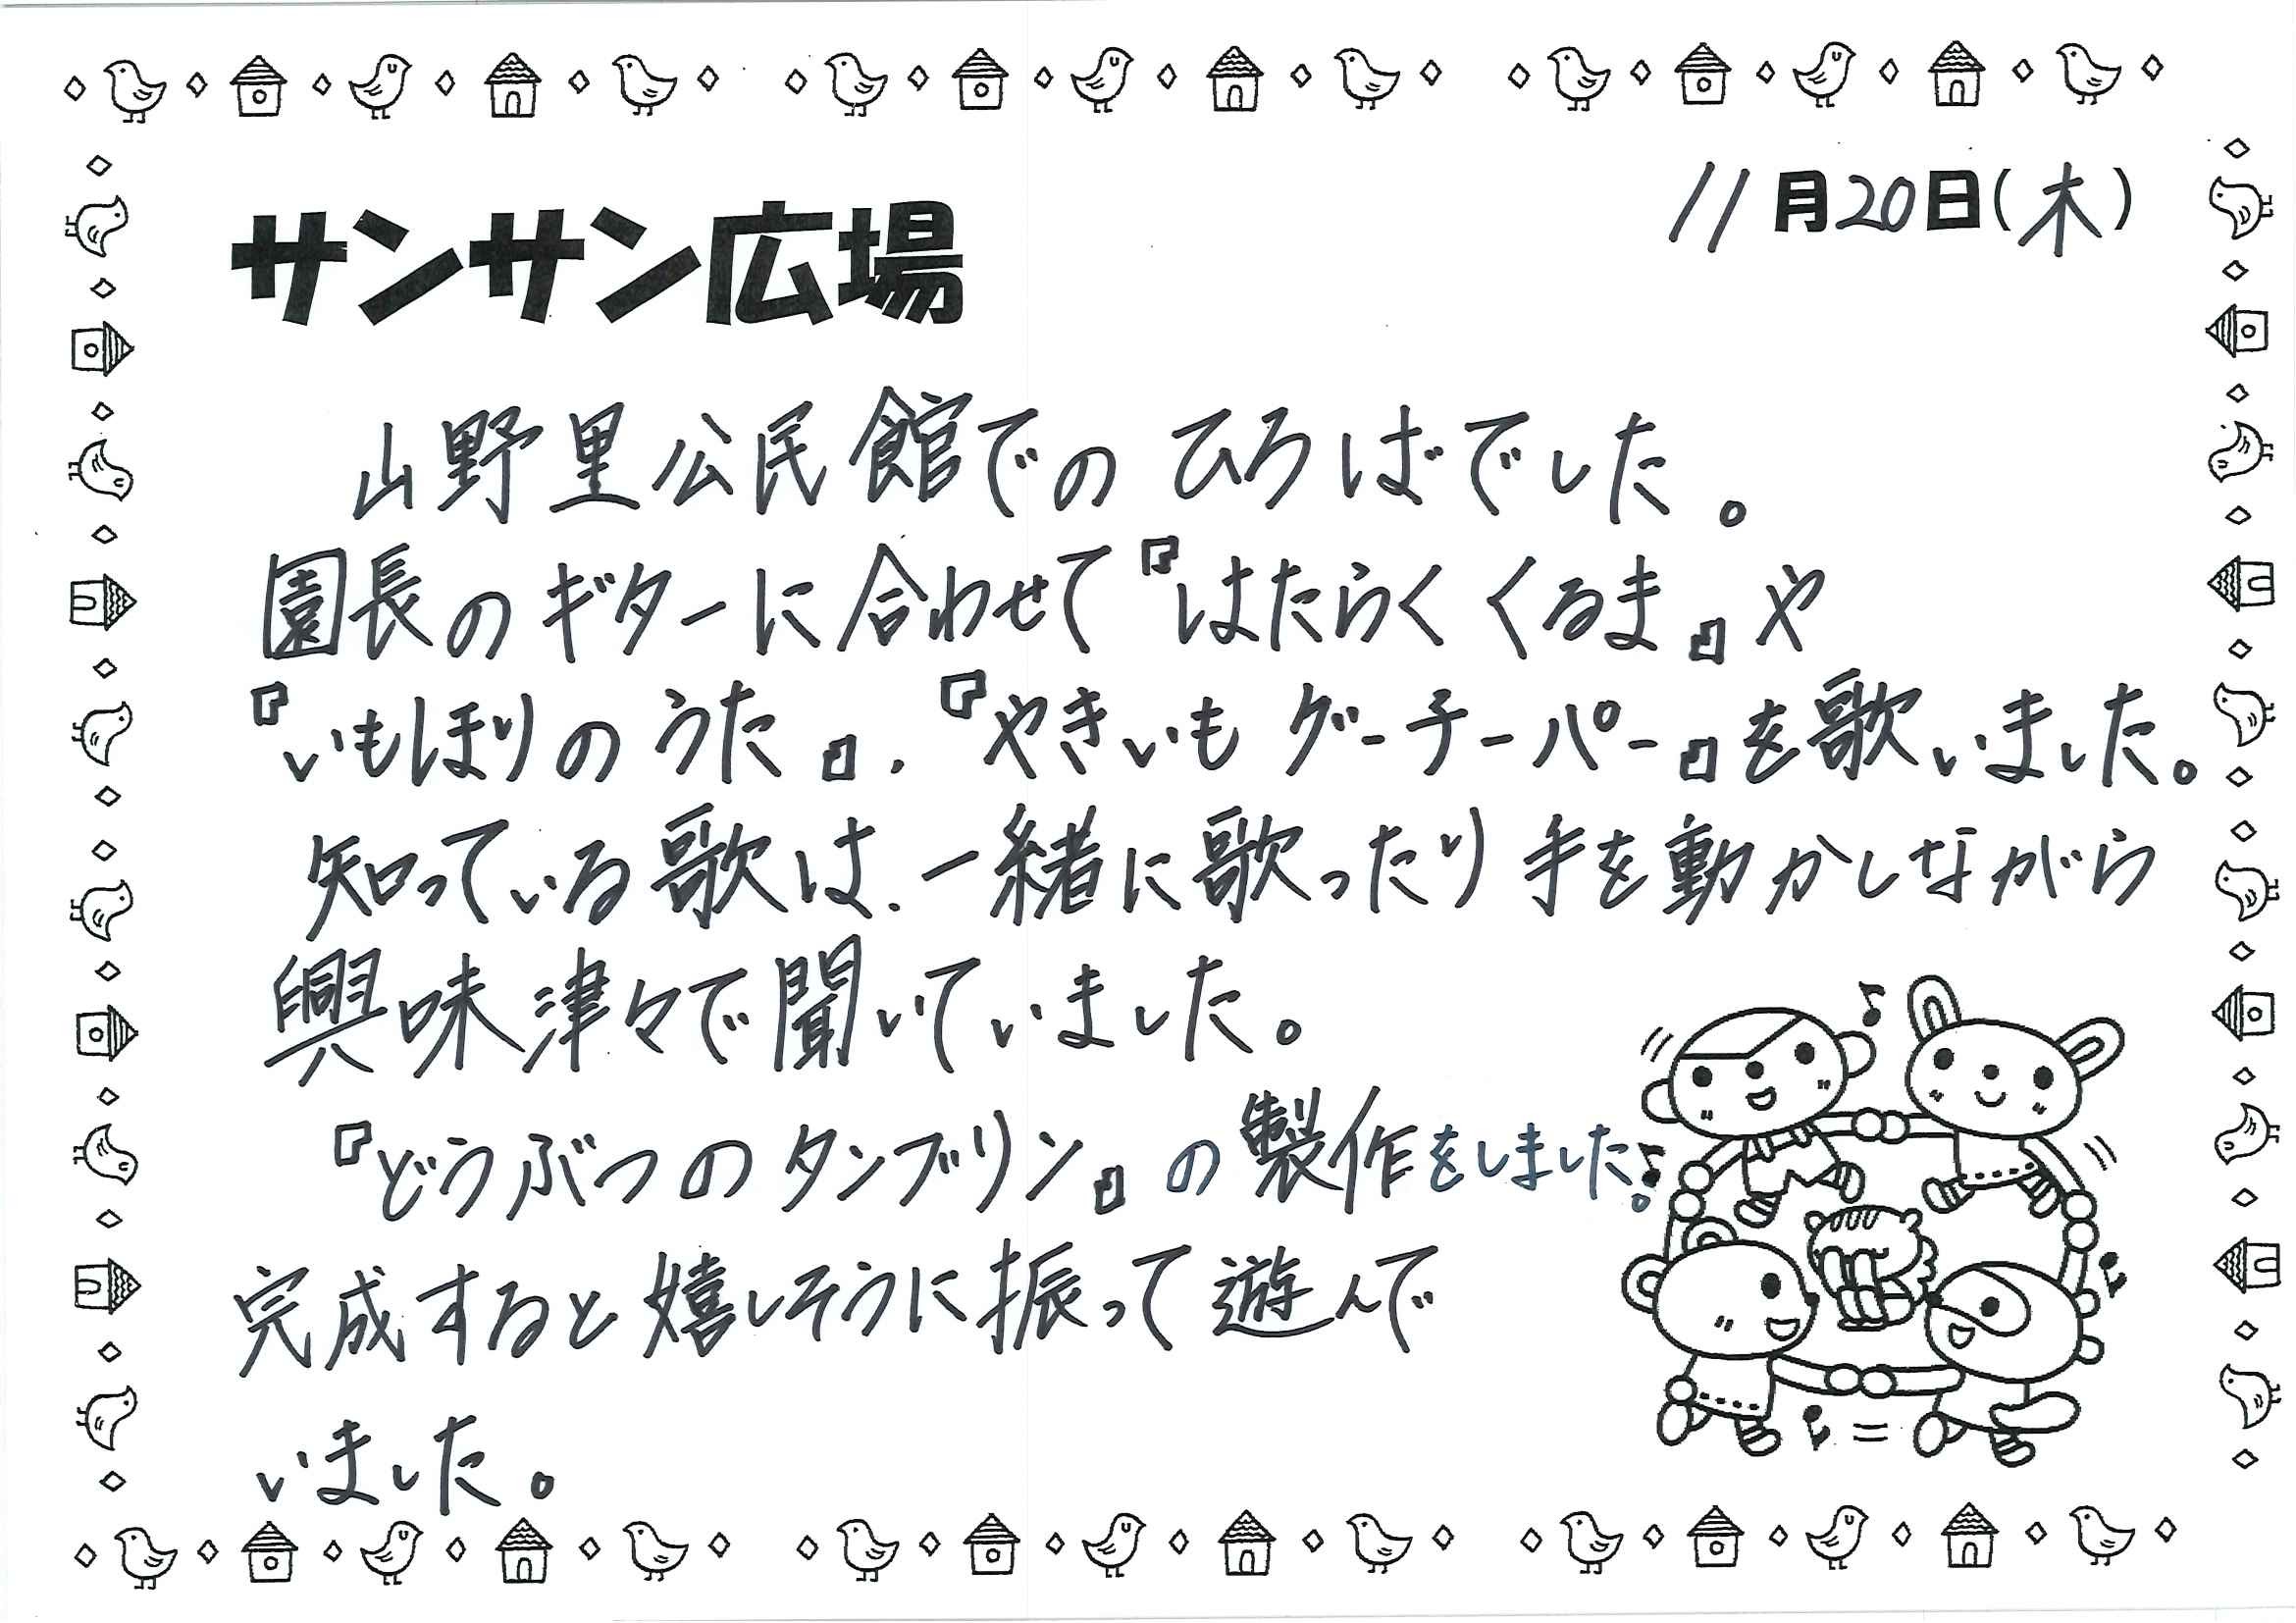 11月20日(木)
サンサン広場
山野里公民館でのひろばでした。
園長のギターに合わせて『はたらくくるま』や
『いもほりのうた』、『やきいもグーチーパー』を歌いました。
知っている歌は、一緒に歌ったり手を動かしながら
興味津々で聞いていました。
『どうぶつのタンブリン』の製作をしました。
完成すると嬉しそうに振って遊んで
いました。